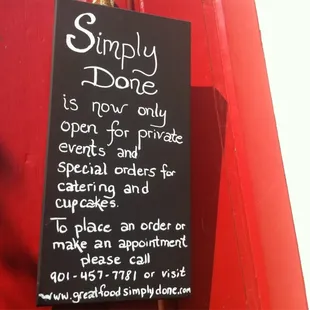 Simply
Done
is now only
open for private
events and
special orders for
catering and
cupcakes.
To place an order or
make an appointment
please call
901-457-7781 or visit
www.greatfoodsimplydone.com